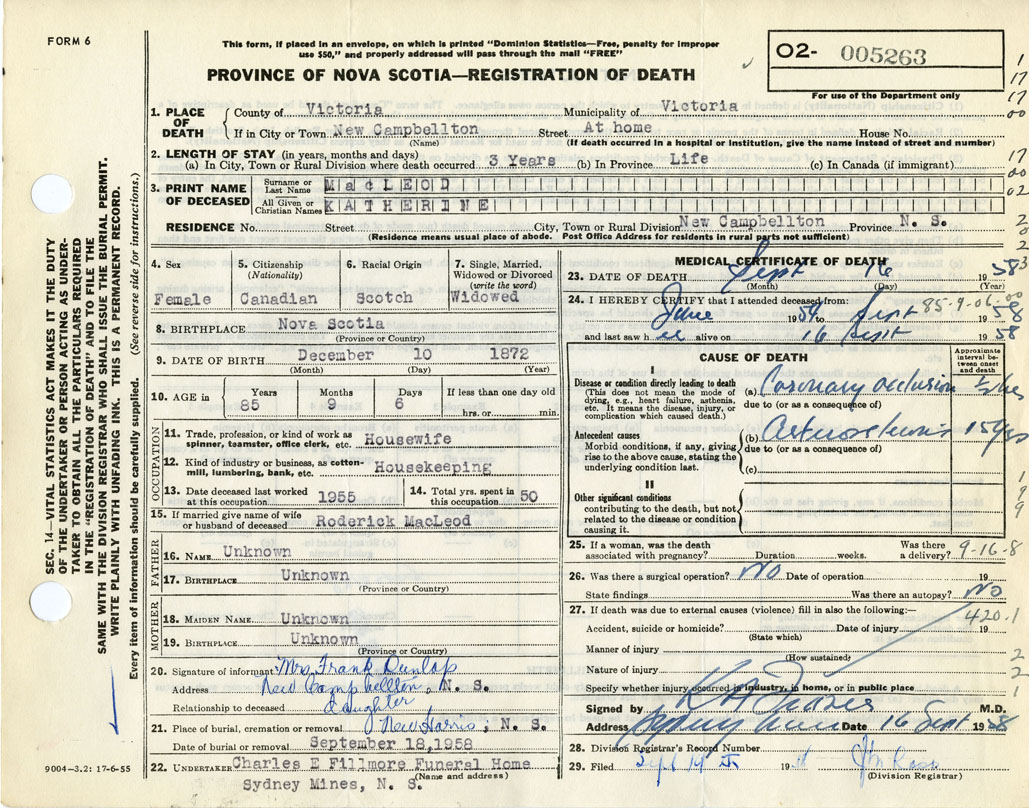 FORM 6
This form, if placed in an envelope, on which is printed "Dominion Statistics—Free, penalty for improper
use $50," and properly addressed will pass through the mail "FREE"
PROVINCE OF NOVA SCOTIA—REGISTRATION OF DEATH
O2- 005263
For use of the Department only
SEC. 14—VITAL STATISTICS ACT MAKES IT THE DUTY
OF THE UNDERTAKER OR PERSON ACTING AS UNDER-
TAKER TO OBTAIN ALL THE PARTICULARS REQUIRED
IN THE "REGISTRATION OF DEATH" AND TO FILE THE
SAME WITH THE DIVISION REGISTRAR WHO SHALL ISSUE THE BURIAL PERMIT.
WRITE PLAINLY WITH UNFADING INK. THIS IS A PERMANENT RECORD.
Every item of information should be carefully supplied. (See reverse side for instructions.)
1. PLACE OF DEATH
County of Victoria Municipality of Victoria
If in City or Town New Campbellton Street At home House No.
(Name) (If death occurred in a hospital or Institution, give the name instead of street and number)
2. LENGTH OF STAY (in years, months and days)
(a) In City, Town or Rural Division where death occurred 3 Years (b) In Province Life (c) In Canada (if immigrant)
3. PRINT NAME OF DECEASED
Surname or Last Name MacLEOD
All Given or Christian Names KATHERINE
RESIDENCE No. Street City, Town or Rural Division New Campbellton Province N. S.
(Residence means usual place of abode. Post Office Address for residents in rural parts not sufficient)
4. Sex
Female
5. Citizenship
(Nationality)
Canadian
6. Racial Origin
Scotch
7. Single, Married,
Widowed or Divorced
(write the word)
Widowed
8. BIRTHPLACE Nova Scotia
(Province or Country)
9. DATE OF BIRTH December 10 1872
(Month) (Day) (Year)
10. AGE in
Years 85
Months 9
Days 6
If less than one day
hrs. or min.
OCCUPATION
11. Trade, profession, or kind of work as
spinner, teamster, office clerk, etc. Housewife
12. Kind of industry or business, as cotten-
mill, lumbering, bank, etc. Housekeeping
13. Date deceased last worked
at this occupation 1955
14. Total yrs. spent in
this occupation 50
15. If married give name of wife
or husband of deceased Roderick MacLeod
FATHER
16. NAME Unknown
17. BIRTHPLACE Unknown
(Province or Country)
MOTHER
18. MAIDEN NAME Unknown
19. BIRTHPLACE Unknown
(Province or Country)
20. Signature of informant Mrs. Frank Dunlop
Address New Campbellton, N. S.
Relationship to deceased daughter
21. Place of burial, cremation or removal New Harris, N. S.
Date of burial or removal September 18, 1958
22. UNDERTAKER Charles E Fillmore Funeral Home
(Name and address)
Sydney Mines, N. S.
9004-3.2: 17-6-55
MEDICAL CERTIFICATE OF DEATH
23. DATE OF DEATH Sept 16 1958
(Month) (Day) (Year)
24. I HEREBY CERTIFY that I attended deceased from:
85-9-06
June 1954 to Sept 1958
and last saw her alive on 16 Sept 1958
CAUSE OF DEATH
Approximate interval between onset and death
I
Disease or condition directly leading to death
(This does not mean the mode of
dying, e.g., heart failure, asthenia,
etc. It means the disease, injury, or
complication which caused death.)
(a) Coronary occlusion ½ hr
due to (or as a consequence of)
Antecedent causes
Morbid conditions, if any, giving
rise to the above cause, stating the
underlying condition last.
(b) Arteriosclerosis 15 yrs
due to (or as a consequence of)
(c)
II
Other significant conditions
contributing to the death, but not
related to the disease or condition
causing it.
25. If a woman, was the death
associated with pregnancy? Duration weeks. Was there
a delivery? 9-16-8
26. Was there a surgical operation? No Date of operation 19
State findings Was there an autopsy? No
27. If death was due to external causes (violence) fill in also the following:—
420.1
Accident, suicide or homicide? Date of injury 19
(State which)
Manner of injury
(How sustained)
Nature of injury
Specify whether injury occurred in industry, in home, or in public place
Signed by M.D.
Address Sydney Mines Date 16 Sept 1958
28. Division Registrar's Record Number
29. Filed Sept 19 19
(Division Registrar)
1
17
17
00
17
00
02
2
0
2
3
00
1
9
9
1
2
2
1